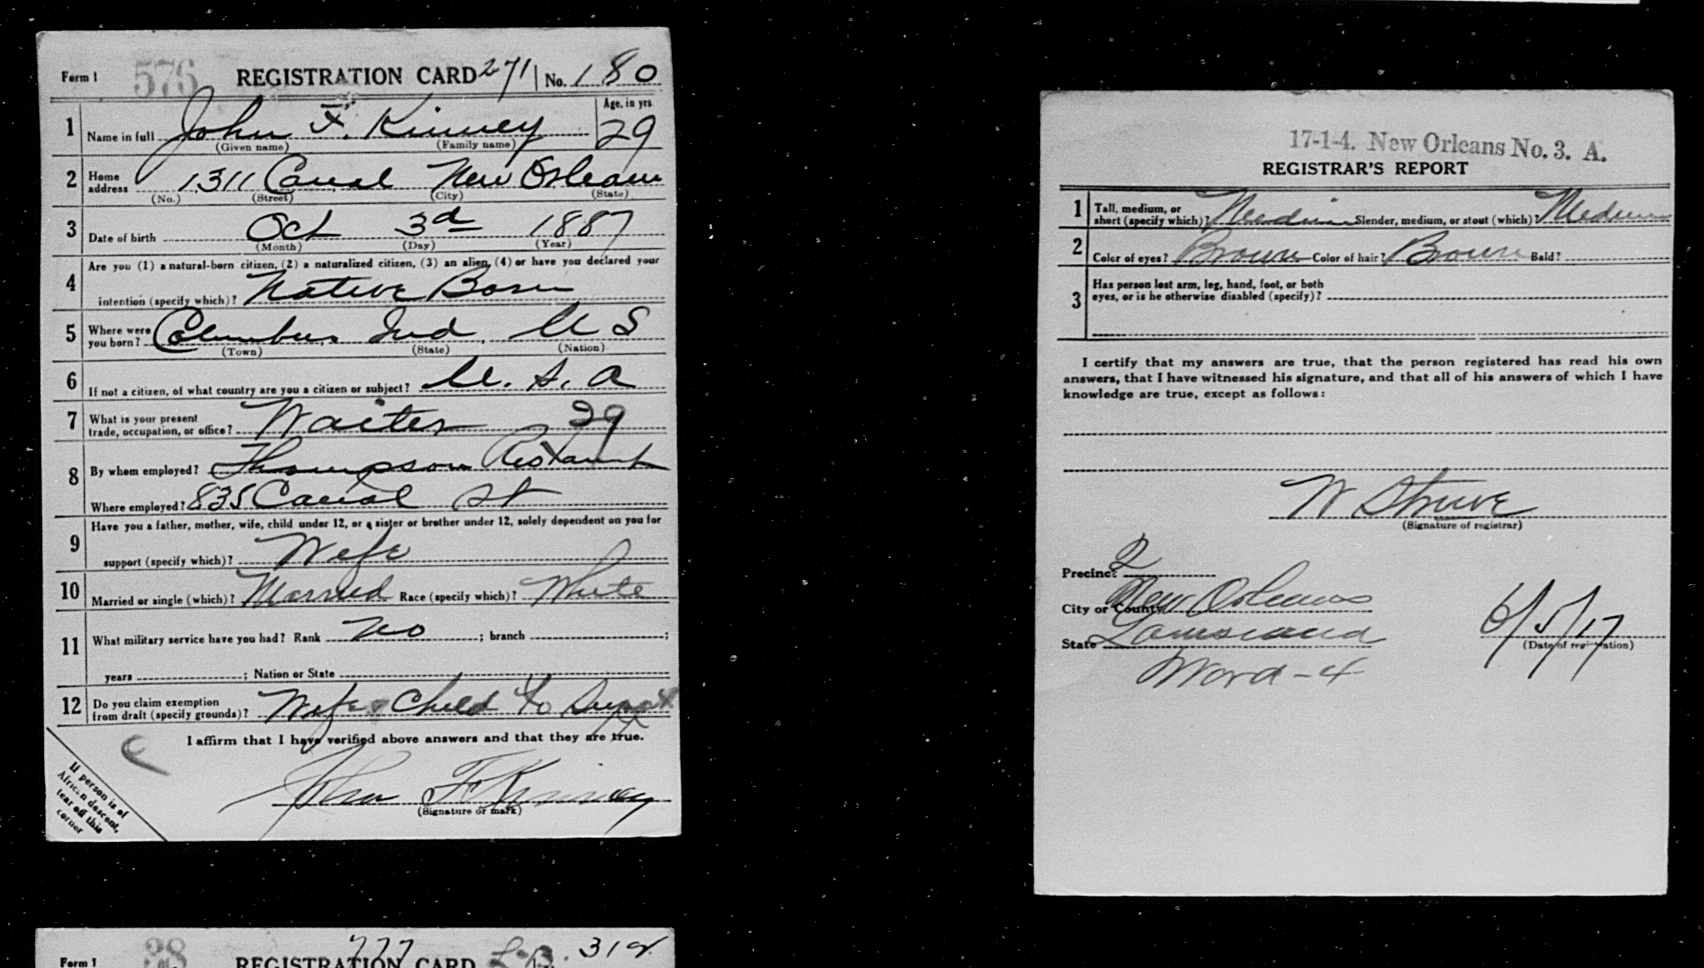 Form 1 576 REGISTRATION CARD 271 No. 180
1 Name in full John F. Kinney Age, in yrs 29
(Given name) (Family name)
2 Home address 1311 Canal New Orleans
(No.) (Street) (City) (State)
3 Date of birth Oct 3d 1887
(Month) (Day) (Year)
4 Are you (1) a natural-born citizen, (2) a naturalized citizen, (3) an alien, (4) or have you declared your
intention (specify which)? Native Born
5 Where were you born? Columbus Ind. U S
(Town) (State) (Nation)
6 If not a citizen, of what country are you a citizen or subject? U. S. A
7 What is your present trade, occupation, or office? Waiter 29
8 By whom employed? Thompson Restaurant
Where employed? 835 Canal St
9 Have you a father, mother, wife, child under 12, or a sister or brother under 12, solely dependent on you for
support (specify which)? Wife
10 Married or single (which)? Married Race (specify which)? White
11 What military service have you had? Rank No ; branch ;
years ; Nation or State
12 Do you claim exemption from draft (specify grounds)? Wife & Child to Support
I affirm that I have verified above answers and that they are true.
John F Kinney
(Signature or mark)
If person is of
African descent,
tear off this
corner
17-1-4. New Orleans No. 3. A.
REGISTRAR'S REPORT
1 Tall, medium, or short (specify which)? Medium Slender, medium, or stout (which)? Medium
2 Color of eyes? Brown Color of hair? Brown Bald?
3 Has person lost arm, leg, hand, foot, or both
eyes, or is he otherwise disabled (specify)?
I certify that my answers are true, that the person registered has read his own
answers, that I have witnessed his signature, and that all of his answers of which I have
knowledge are true, except as follows:
W Struve
(Signature of registrar)
Precinct 2
City or County New Orleans
State Louisiana
6/5/17
(Date of registration)
Ward-4
Form 1 38 REGISTRATION CARD 777 319